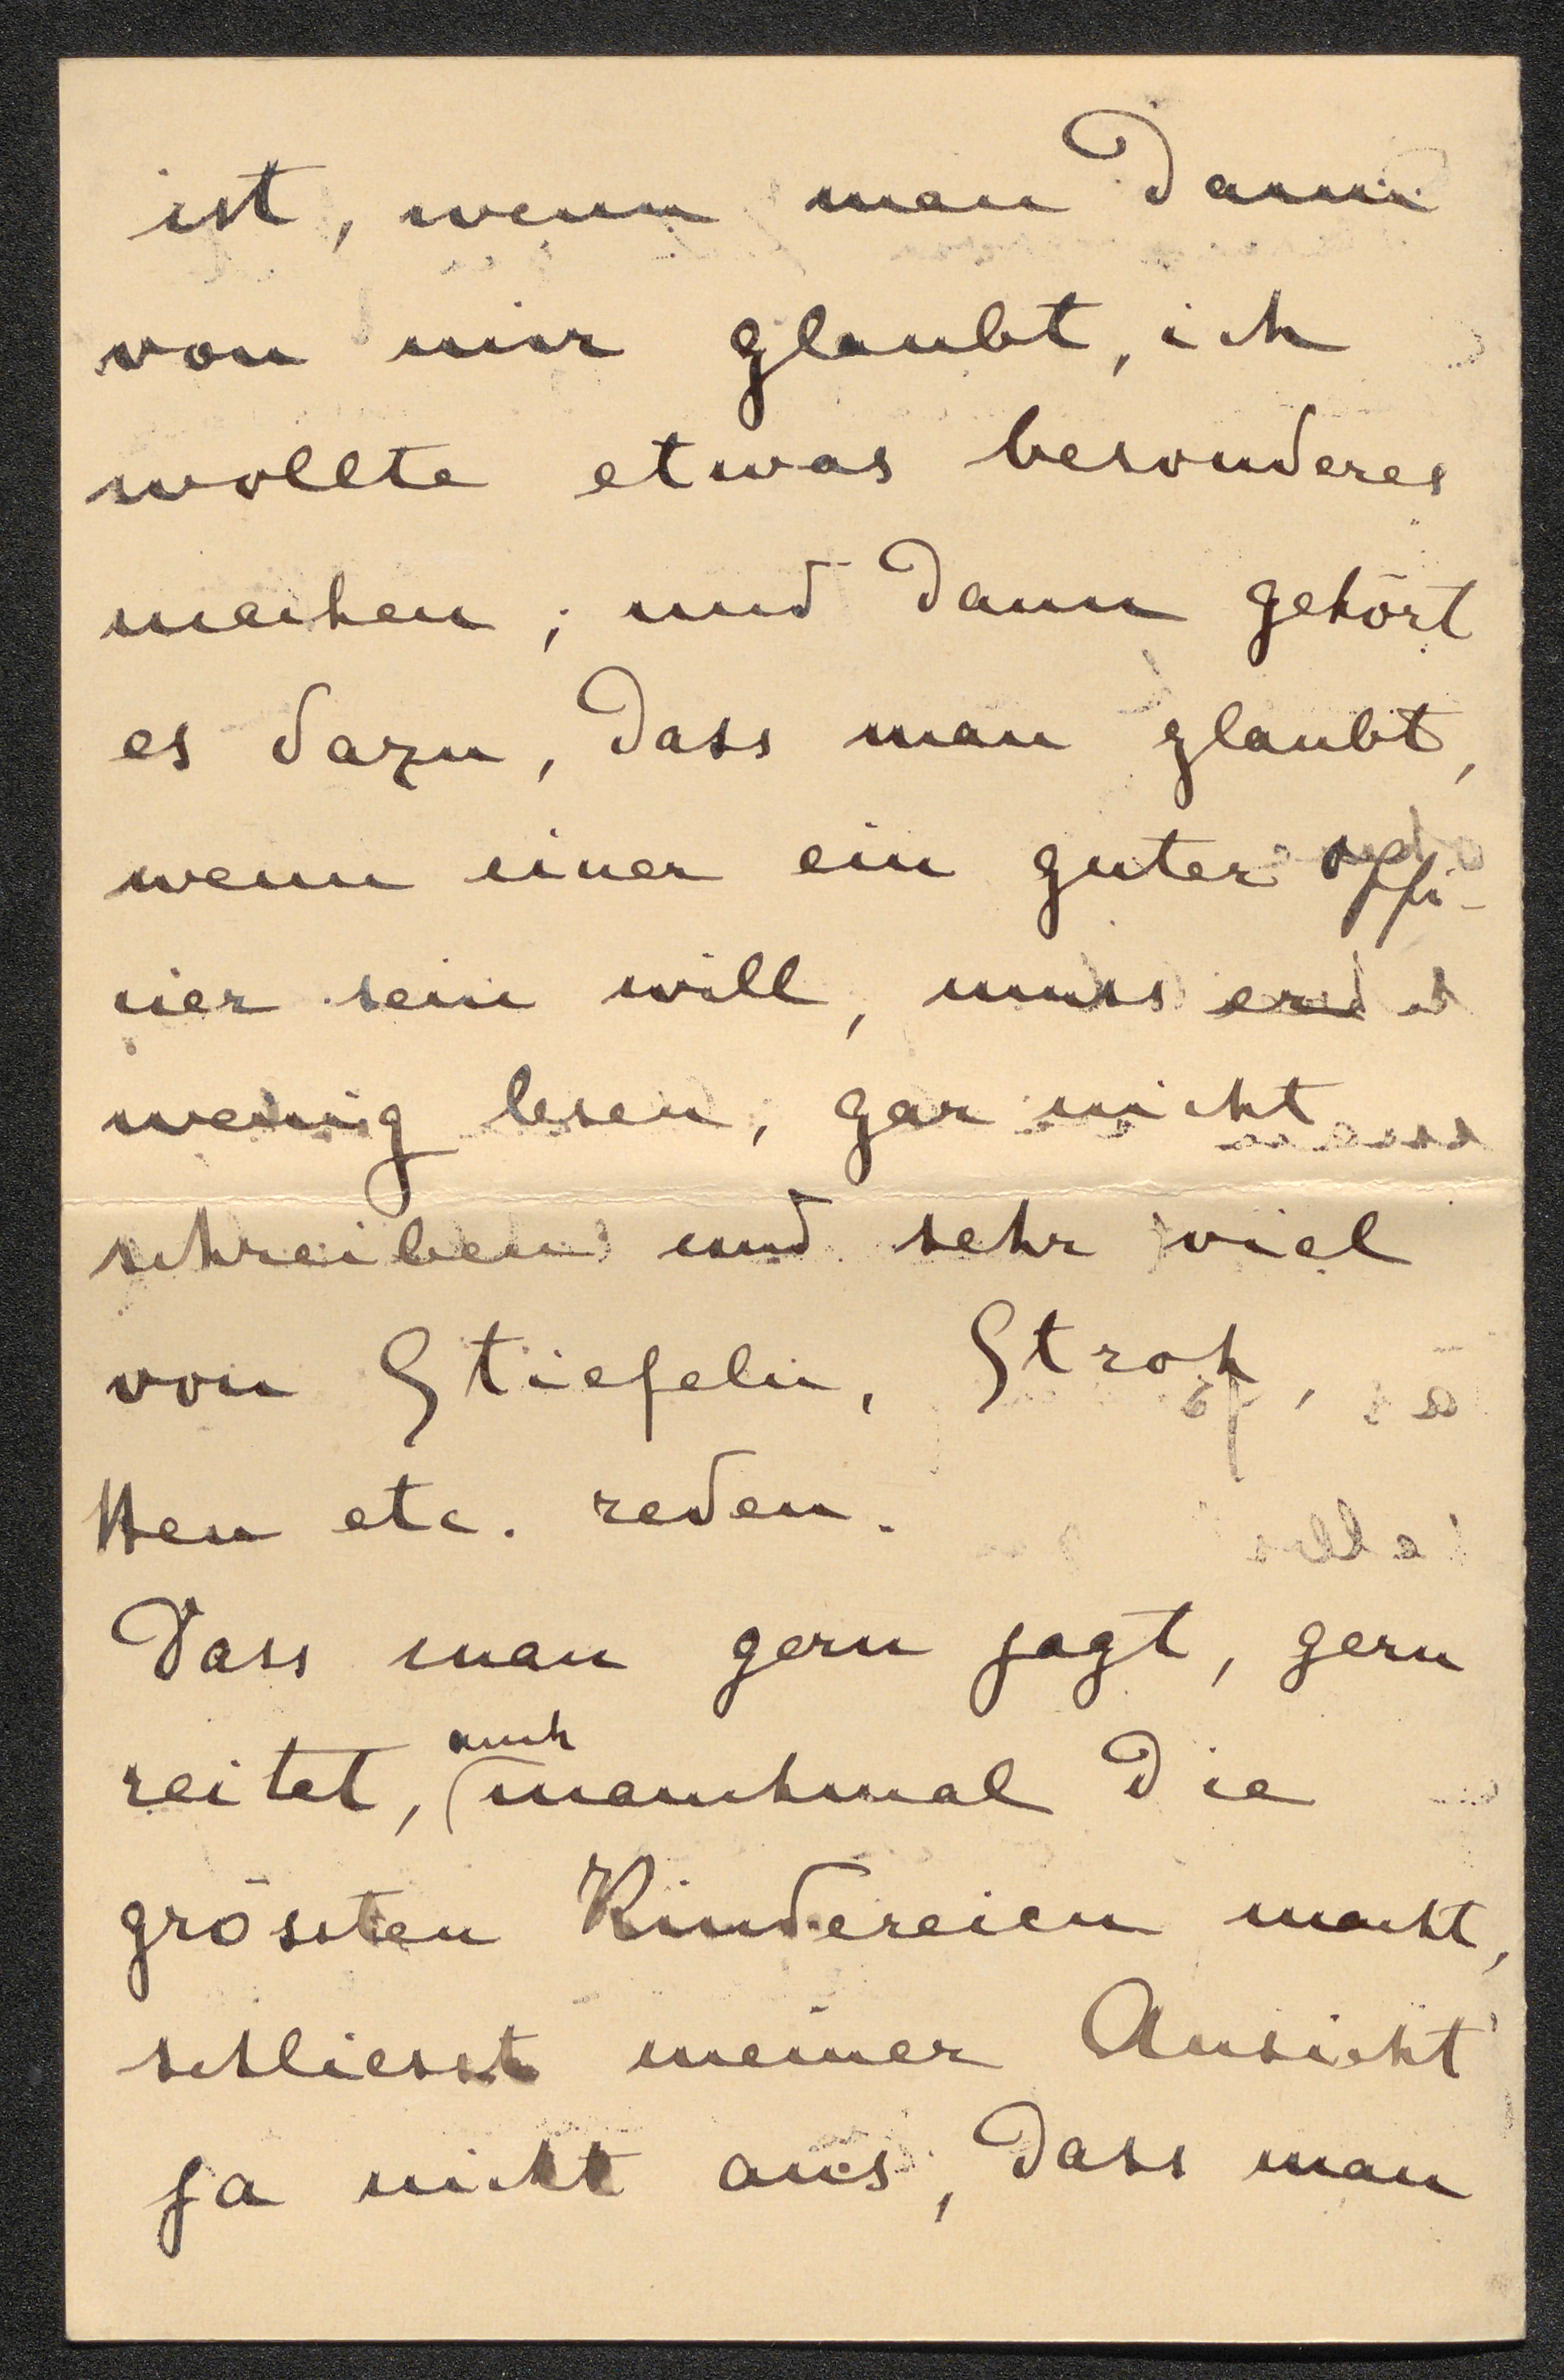 ist, wenn man dann
von mir glaubt, ich
wollte etwas besonderes
machen; und dann gehört
es dazu, dass man glaubt,
wenn einer ein guter offi-
cier sein will, muss er
wenig lesen, gar nicht
schreiben und sehr viel
von Stiefeln, Stroh,
Heu etc. reden.
Dass man gern jagt, gern
reitet, auch manchmal die
grössten Kindereien macht,
schliesst meiner Ansicht
ja nicht aus, dass man